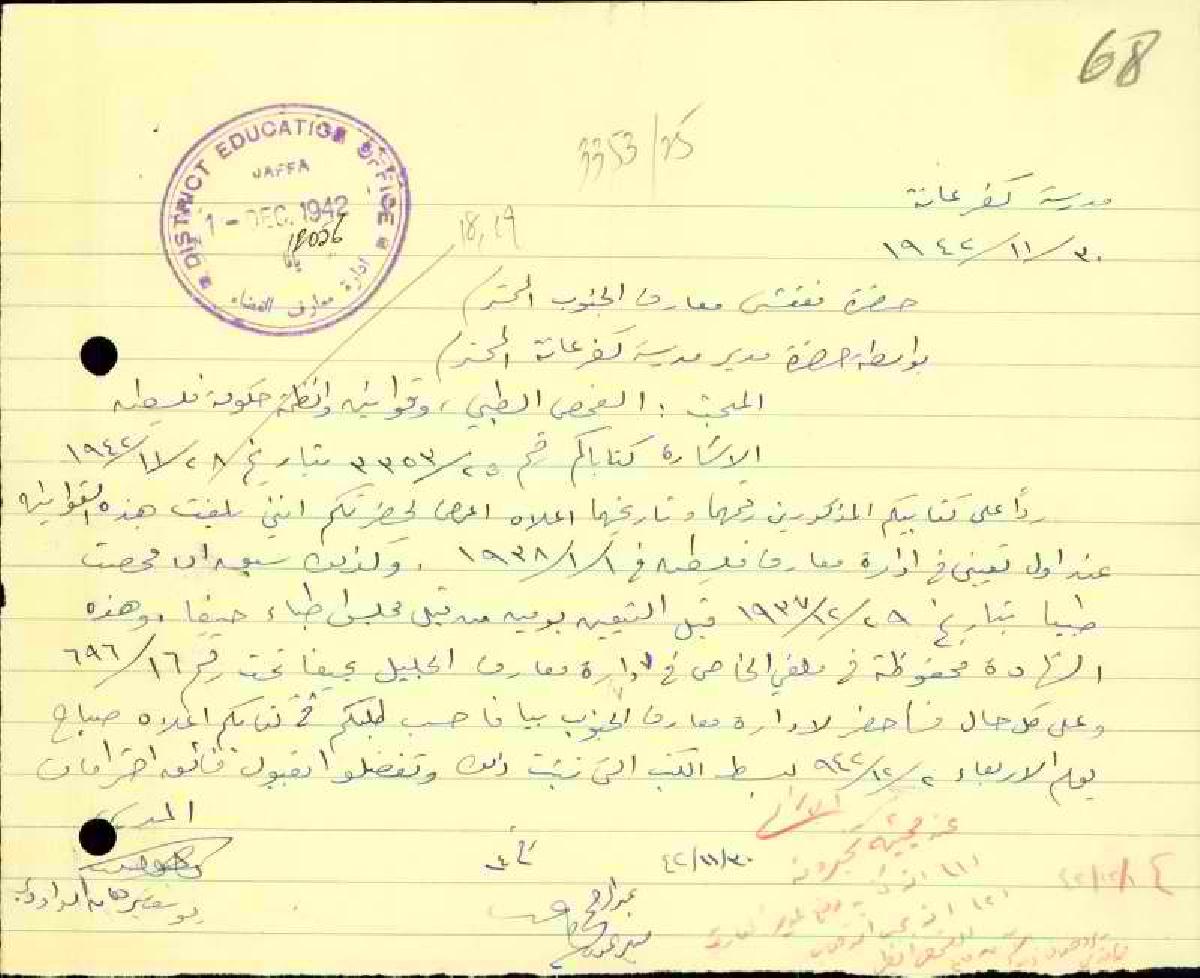 68
3353/25
DISTRICT EDUCATION OFFICE
JAFFA
1 - DEC. 1942
يافا
ادارة معارف القضاء
18,19
مدرسة كفرعانة
١٩٤٢/١١/٣٠
حضرة مفتش معارف الجنوب المحترم
بواسطة حضرة مدير مدرسة كفرعانة المحترم
المبحث : الفحص الطبي ، وقوانين وانظمة حكومة فلسطين
الاشارة كتاباكم رقم ٣٣٥٣/٢٥ بتاريخ ١٩٤٢/١١/٢٨
رداً على كتابيكم المذكورين رقمهما وتاريخهما اعلاه اعرض لحضرتكم انني بلغت هذه القوانين
عند اول تعييني في ادارة معارف فلسطين في ١٩٣٨/١/١ . وكذلك سبق ان فحصت
طبيا بتاريخ ١٩٣٧/١٢/٢٩ قبل التعيين بيومين من قبل مجلس اطباء حيفا . وهذه
الشهادة محفوظة في ملفي الخاص في ادارة معارف الجليل بحيفا تحت رقم ٦٩٦/١٦
وعلى كل حال فسأحضر لادارة معارف الجنوب بيافا حسب طلبكم في كتابكم اعلاه صباح
يوم الاربعاء ٩٤٢/١٢/٢ لبسط الكتب التي تثبت ذلك وتفضلوا بقبول فائق احترامات
المدرس
٤٢/١١/٣٠
٤٢/١٢/١